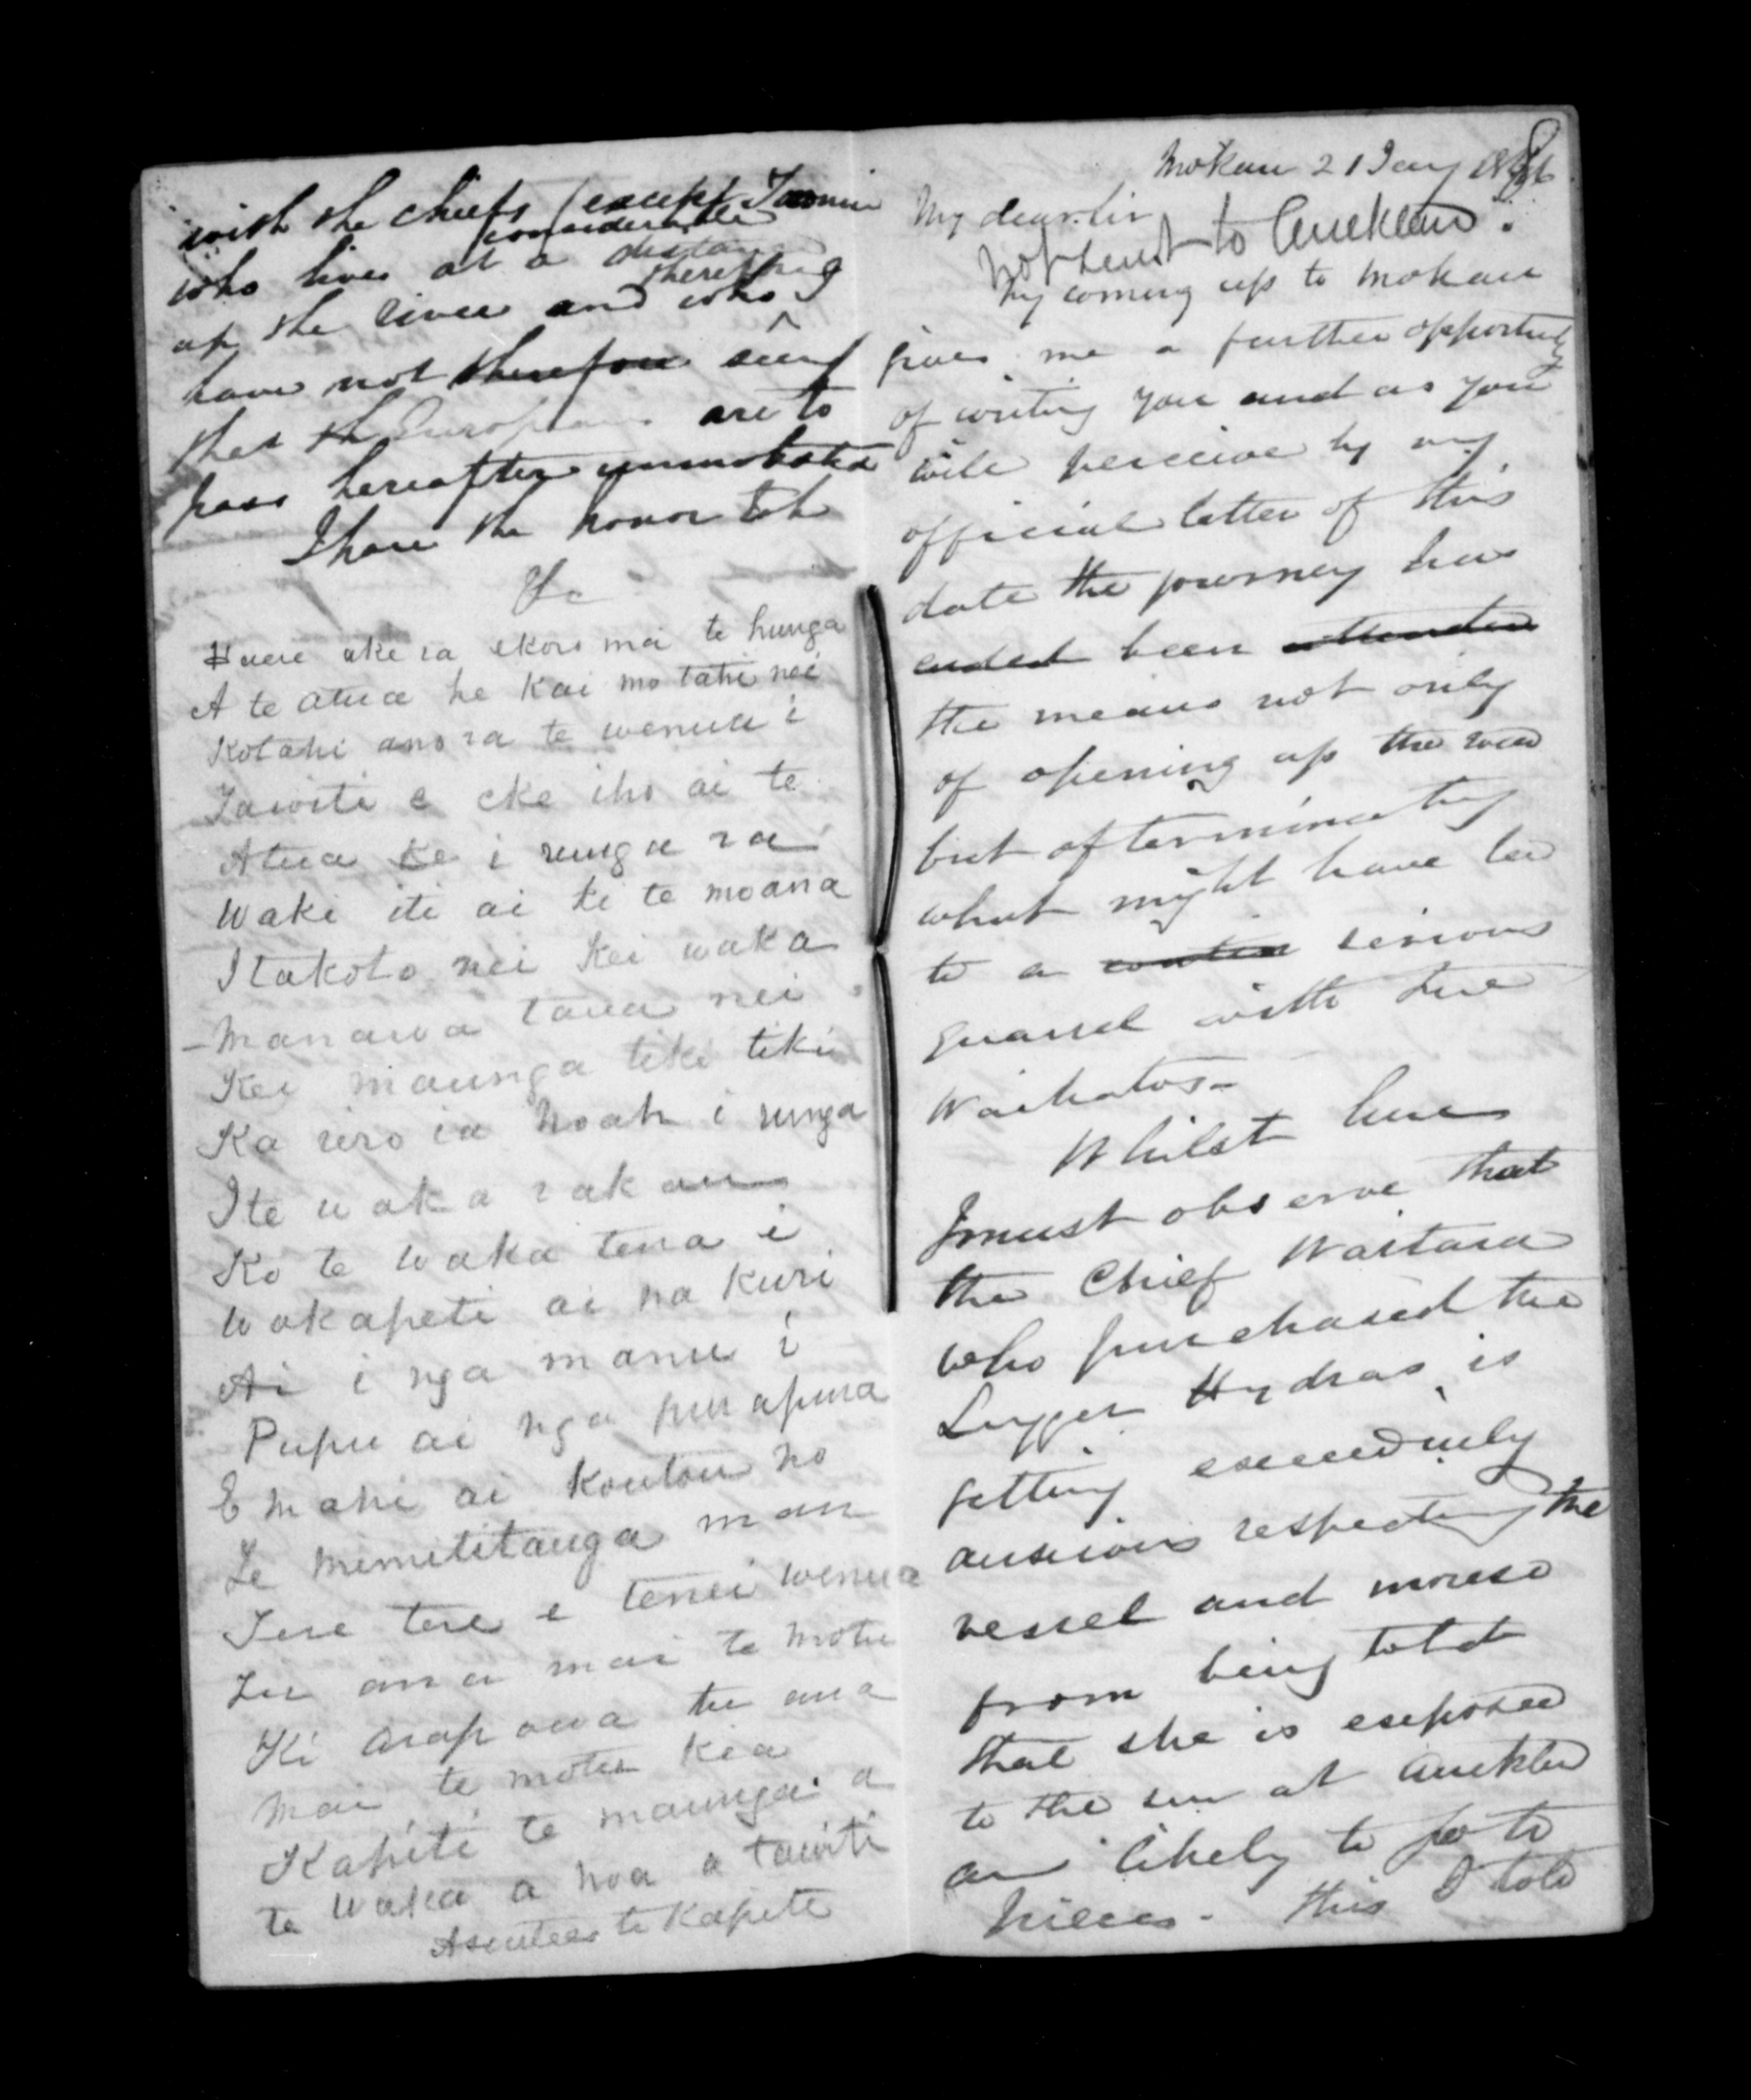 with the chiefs (except
considerable
who lives at a distance
therefore
up the river and who I
have not therefore seen)
that the Europeans are to
pass hereafter unmolested
I have the honor to be
&c
Haere ake ra ekore ma te hunga
A te atua he kai mo tahi nei
Kotahi ano ra te wenua i
Tawiti e eke iho ai te
Atua ke i runga ra
Waki iti ai ki te moana
Itakoto nei Kei waka
Manawa taua nei
Kei maunga tiki tiki
Ka riro ia Noah i runga
Ite waka rakau
Ko te waka tena i
Wakapeti ai na Kuri
Ai i nga manu i
Pupu ai nga purapura
E mahi ai Koutou no
Te mimititanga mau
Tere tere e tenei wenua
Tu ana mai te motu
Ki arapawa tu ana
Mai te motu kia
Kapiti te maunga a
te waka a noa a tawiti
te Kapiti
Mokau 21 Jany
My dear Sir
Not sent to Auckland.
My coming up to Mokau
gives me a further opportunity
of writing you and as you
will perceive by my
official letter of this
date the journey has
ended been attended
the means not only
of opening up the road
but of terminating
what might have led
to a serious
quarrel with the
Waikatos-
Whilst here
I must observe that
the Chief Waitara
who purchased the
Lugger Hydras is
getting exceedingly
anxious respecting the
vessel and more so
from being told
that she is exposed
to the sun at Auckland
an likely to go to
pieces. This I told